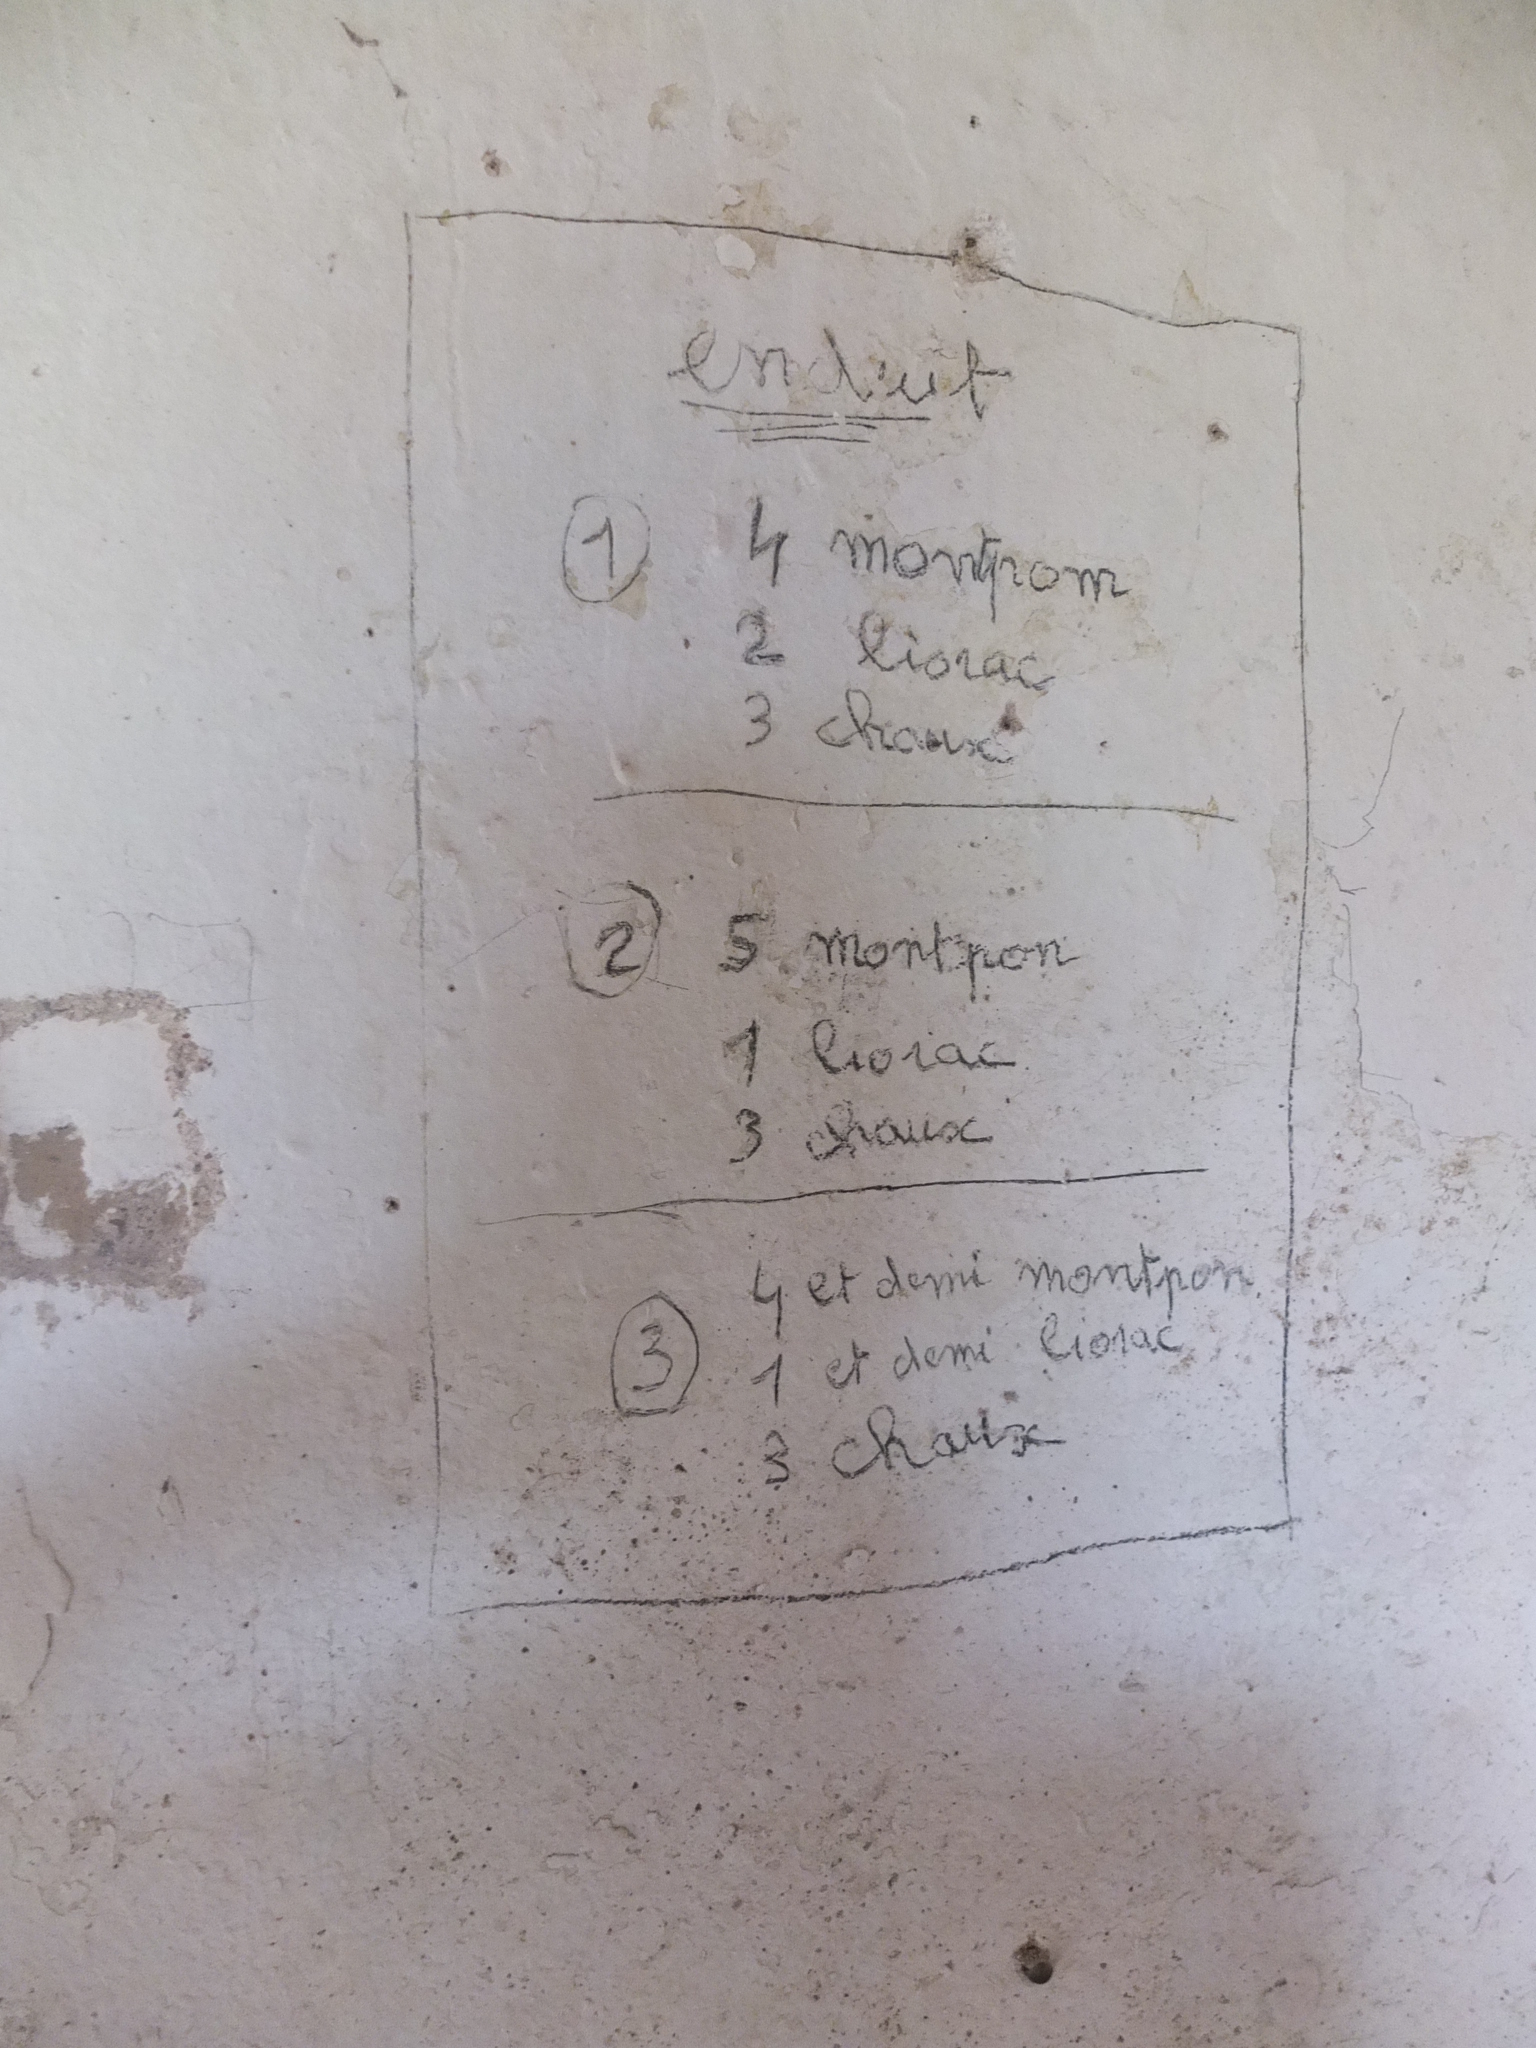 enduit
1 4 montpom
2 liorac
3 chaux
2 5 montpon
1 liorac
3 chaux
4 et demi montpon
3 1 et demi liorac
3 chaux